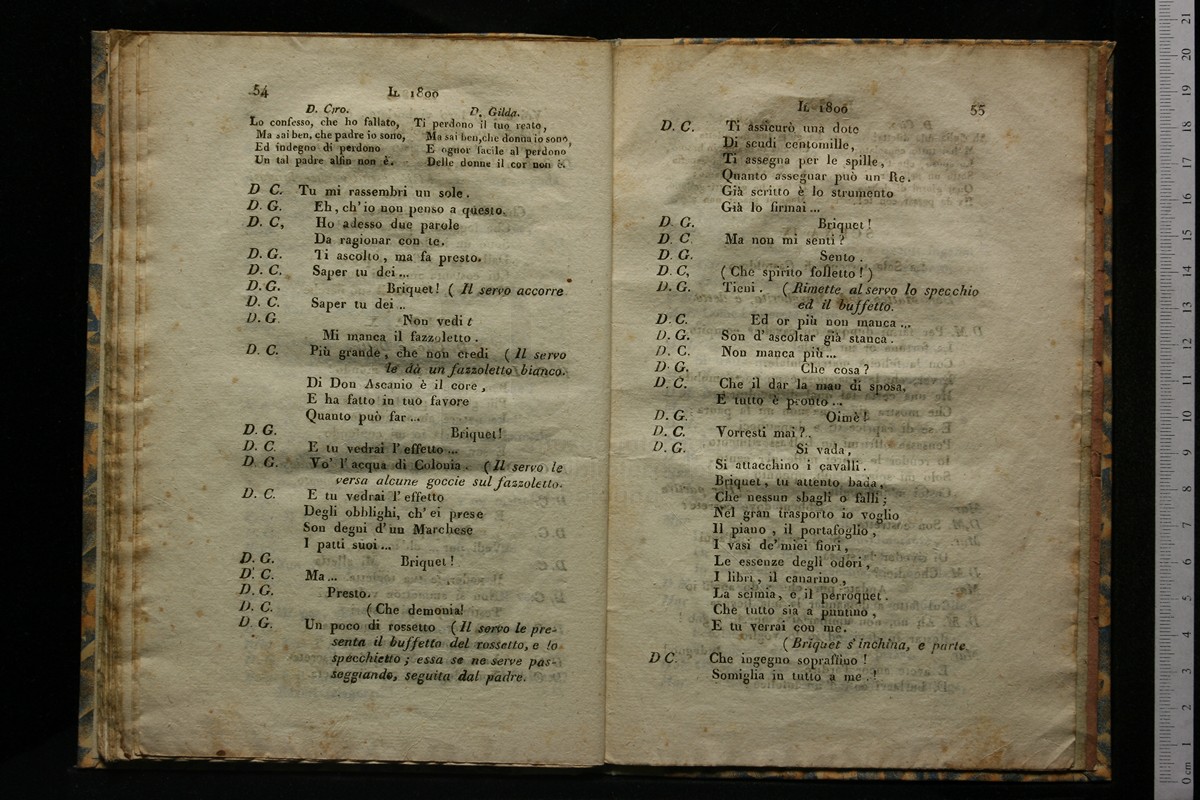 54
IL 1800
D. Ciro.
Lo confesso, che ho fallato,
Ma sai ben, che padre io sono,
Ed indegno di perdono
Un tal padre alfin non è.
D. Gilda.
Ti perdono il tuo reato,
Ma sai ben, che donna io sono,
E ognor facile al perdono
Delle donne il cor non è.
D C. Tu mi rassembri un sole.
D. G. Eh, ch' io non penso a questo.
D. C, Ho adesso due parole
Da ragionar con te.
D. G. Ti ascolto, ma fa presto.
D. C. Saper tu dei ...
D. G. Briquet! ( Il servo accorre
D. C. Saper tu dei ..
D. G Non vedi t
Mi manca il fazzoletto.
D. C. Più grande, che non credi ( Il servo
le dà un fazzoletto bianco.
Di Don Ascanio è il core,
E ha fatto in tuo favore
Quanto può far ...
D. G. Briquet!
D. C. E tu vedrai l' effetto ...
D. G. Vo' l' acqua di Colonia. (Il servo le
versa alcune goccie sul fazzoletto.
D. C. E tu vedrai l' effetto
Degli obblighi, ch' ei prese
Son degni d' un Marchese
I patti suoi ...
D. G. Briquet!
D. C. Ma ...
D. G. Presto.
D. C. (Che demonia!
D G. Un poco di rossetto (Il servo le pre-
senta il buffetto del rossetto, e lo
specchietto; essa se ne serve pas-
seggiando, seguita dal padre.
IL 1800
55
D. C. Ti assicurò una dote
Di scudi centomille,
Ti assegna per le spille,
Quanto assegnar può un Re.
Già scritto è lo strumento
Già lo firmai ...
D. G. Briquet!
D. C Ma non mi senti?
D. G. Sento.
D. C, (Che spirito folletto!)
D. G. Tieni. (Rimette al servo lo specchio
ed il buffetto.
D. C. Ed or più non manca ...
D. G. Son d' ascoltar già stanca.
D. C. Non manca più ...
D. G. Che cosa?
D. C. Che il dar la man di sposa,
E tutto è pronto ...
D. G. Oimè!
D. C. Vorresti mai?.
D. G. Si vada,
Si attacchino i cavalli.
Briquet, tu attento bada,
Che nessun sbagli o falli;
Nel gran trasporto io voglio
Il piano, il portafoglio,
I vasi de' miei fiori,
Le essenze degli odori,
I libri, il canarino,
La scimia, e il perroquet.
Che tutto sia a puntino,
E tu verrai con me.
(Briquet s' inchina, e parte
D C Che ingegno sopraffino!
Somiglia in tutto a me!